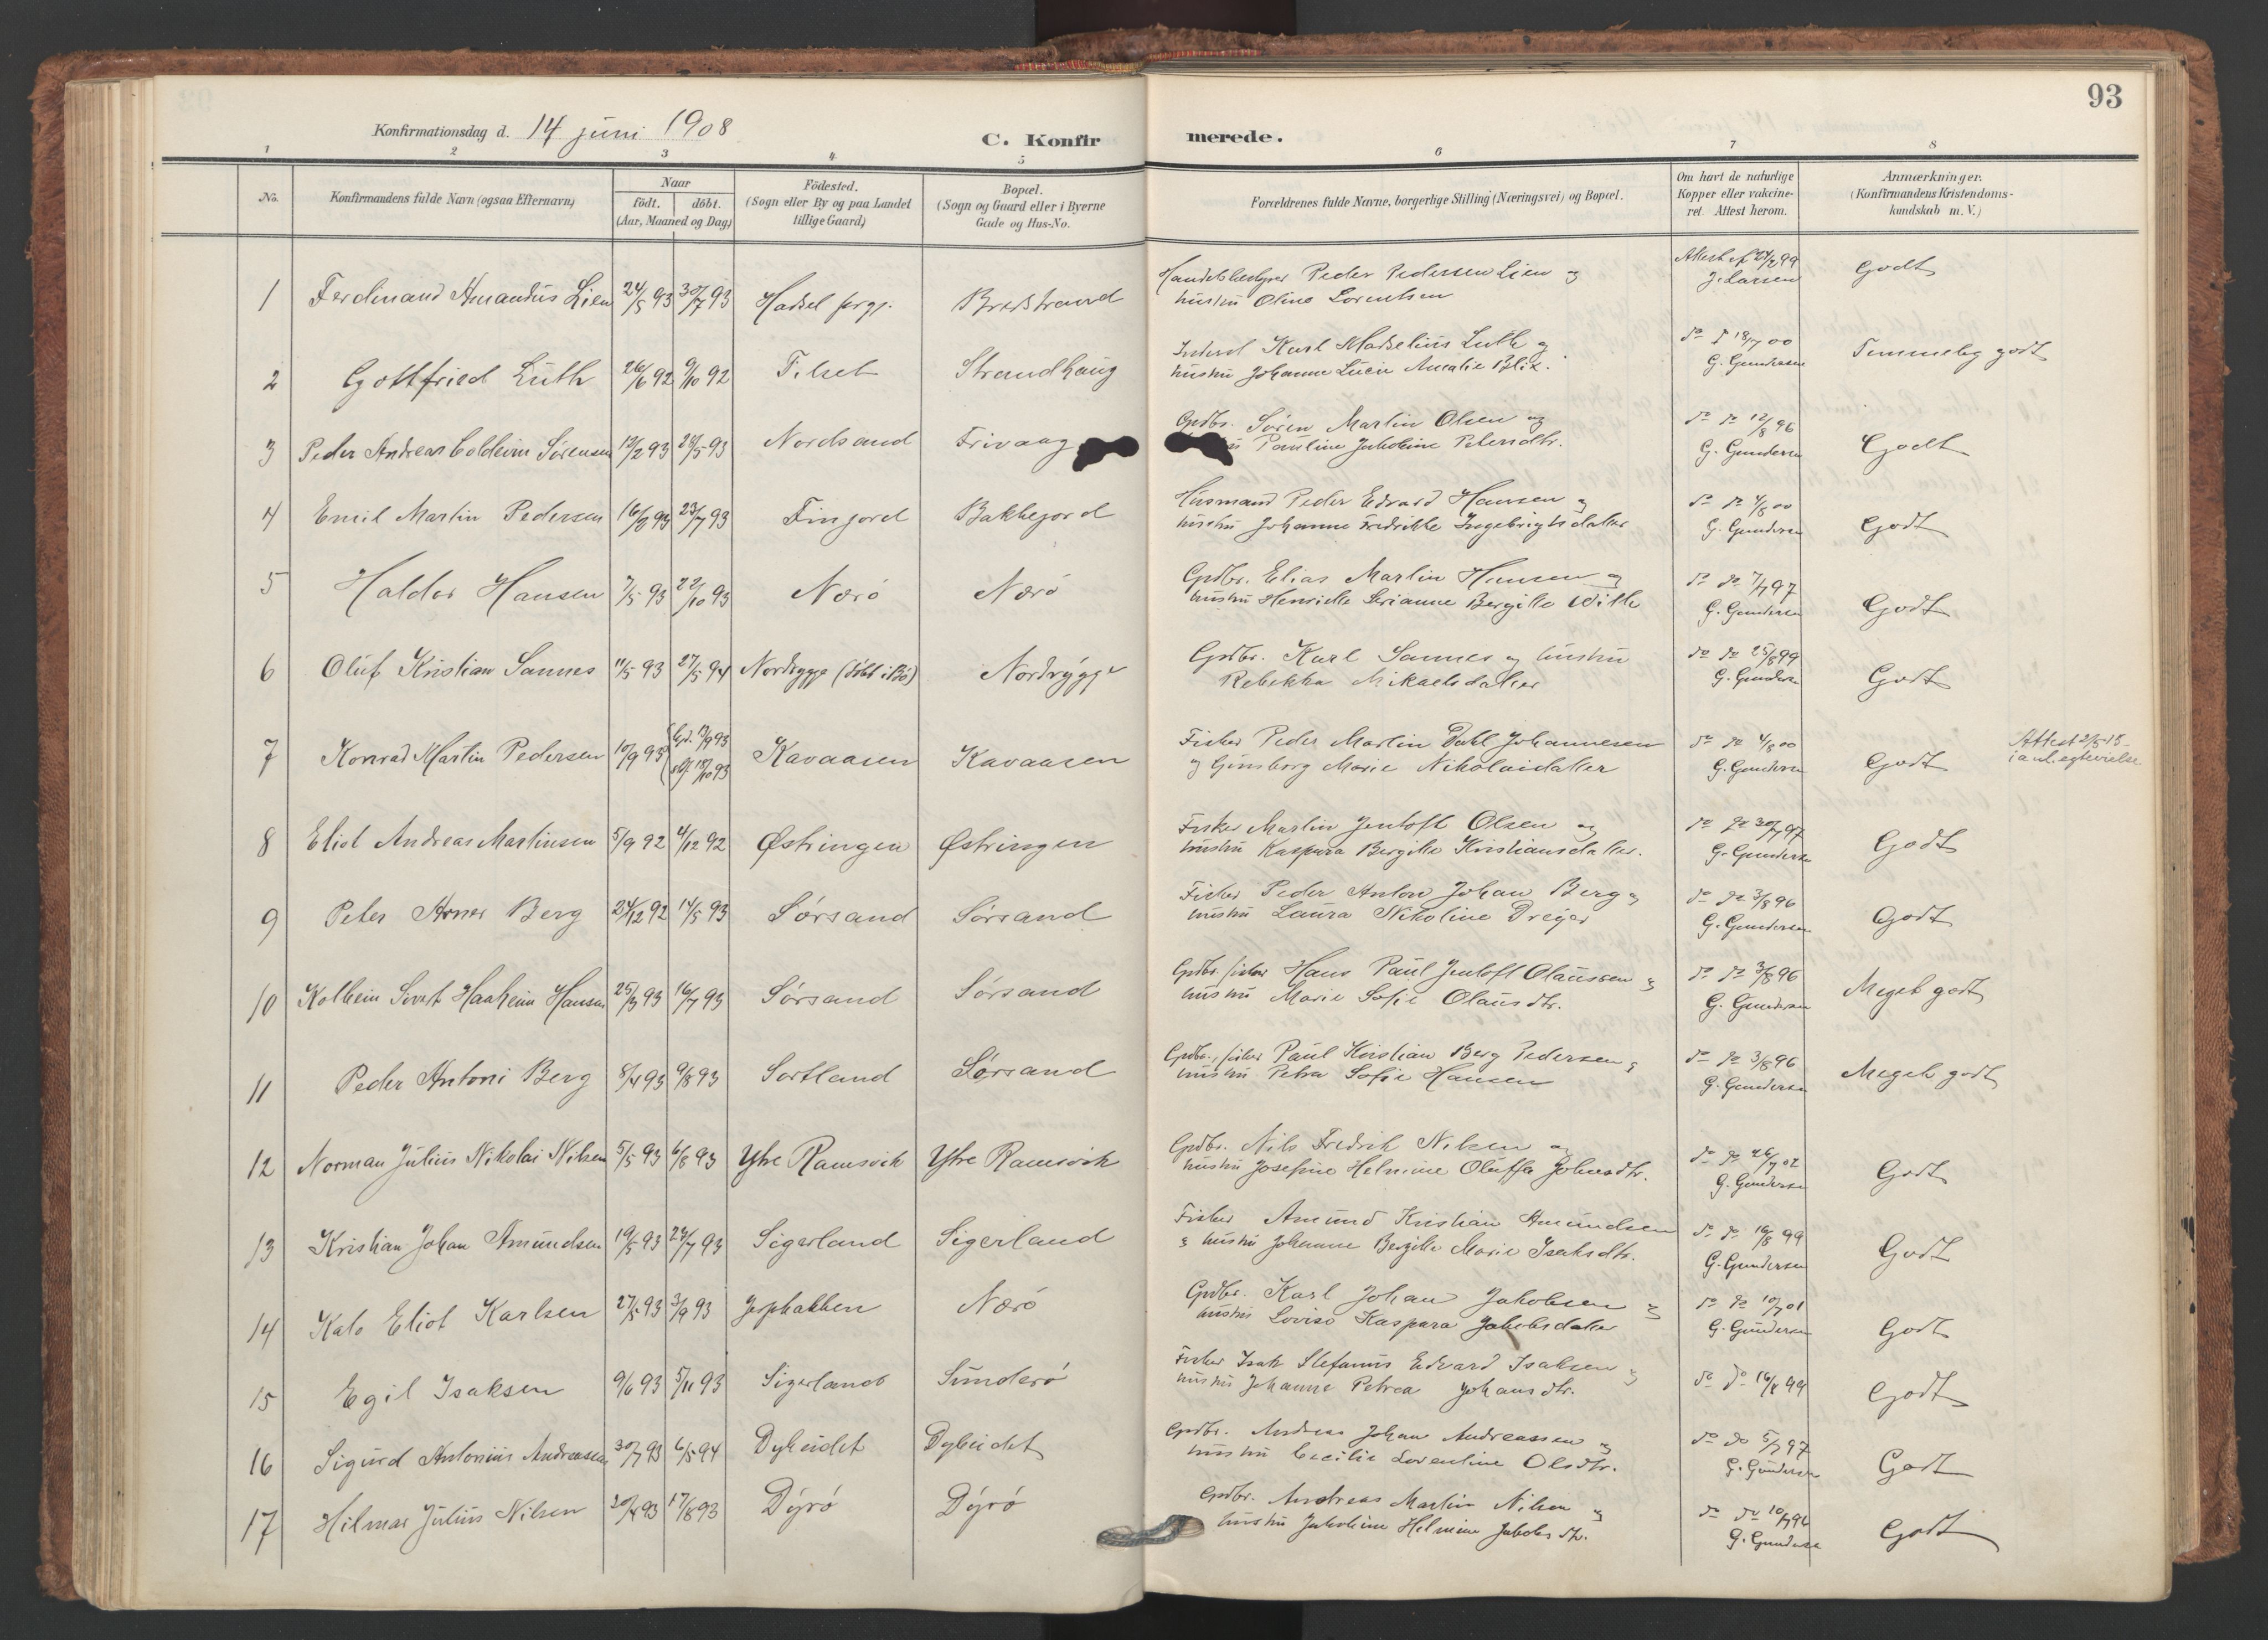 93
Konfirmationsdag d. 14 juni 1908
C. Konfir merede.
1 2 3 4 5 6 7 8
No.
Konfirmandens fulde Navn (ogsaa Efternavn)
Naar
födt. döbt.
(Aar, Maaned og Dag)
Födested.
(Sogn eller By og paa Landet
tillige Gaard)
Bopæl.
(Sogn og Gaard eller i Byerne
Gade og Hus-No.
Forældrenes fulde Navne, borgerlige Stilling (Næringsvei) og Bopæl.
Om havt de naturlige
Kopper eller vakcine-
ret. Attest herom.
Anmærkninger.
(Konfirmandens Kristendoms-
kundskab m. V.)
1 Ferdinand Amandus Lien 24/5 93 30/7 93 Hadsel prgj. Bredstrand
Peder Pedersen Lien og
hustru Oline Lorentsen
Attest af 24/2 99
J. Larsen
Godt
2 Gottfried Luth 26/6 92 9/10 92 Filset Strandhaug
Karl Madselius Luth og
hustru Johanne Lucie Amalie Blix.
do d 18/7 00
G. Gundersen
Temmelig godt
3 Peder Andreas Coldevin Sørensen 12/2 93 28/5 93 Nordsand Frivaag
Grdbr. Søren Martin Olsen og
Pauline Jakobine Petersdtr.
do do 12/8 96
G. Gundersen
Godt
4 Emil Martin Pedersen 16/2 93 23/7 93 Finjord Bakkejord
Husmand Peder Edvard Hansen og
hustru Johanne Fredrikke Ingebrigtsdatter
do do 4/8 00
G. Gundersen
Godt
5 Haldor Hansen 7/5 93 22/10 93 Nærö Nærö
Grdbr. Elias Martin Hansen og
hustru Henrikke Serianne Bergitte With
do do 7/7 97
G. Gundersen
Godt
6 Oluf Kristian Sannes 11/5 93 27/5 94 Nordrygge (döbt i Bö) Nordrygge
Grdbr. Karl Sannes og hustru
Rebekka Mikaelsdatter
do do 25/8 99
G. Gundersen
Godt
7 Konrad Martin Pedersen 10/9 93 hjd. 13/9 93 Kavaasen Kavaasen
stf. 15/10 93
Fisker Peder Martin Dahl Johannesen
og Gunborg Marie Nikolaidatter
do do 4/8 00
G. Gundersen
Godt
Attest 2/5 15
i anl. egtevielse
8 Eliot Andreas Martinsen 5/9 92 4/12 92 Østringen Østringen
Fisker Martin Jentoft Olsen og
hustru Kaspara Bergitte Kristiansdatter.
do do 30/7 97
G. Gundersen
Godt
9 Peter Arner Berg 24/12 92 14/5 93 Sörsand Sörsand
Fisker Peder Anton Johan Berg og
hustru Laura Nikoline Dreyer
do do 3/8 96
G. Gundersen
Godt
10 Kolbein Sivert Haaheim Hansen 25/3 93 16/7 93 Sörsand Sörsand
Grdbr. fisker Hans Paul Jentoft Olaussen og
hustru Marie Sofie Olausdtr.
do do 3/8 96
G. Gundersen
Meget godt
11 Peder Antoni Berg 8/4 93 9/8 93 Sortland Sörsand
Grdbr., fisker Paul Kristian Berg Pedersen og
hustru Petra Sofie Hansen
do do 3/8 96
G. Gundersen
Meget godt
12 Norman Julius Nikolai Nilsen 5/5 93 6/8 93 Ytre Ramsvik Ytre Ramsvik
Grdbr. Nils Fredrik Nilsen og
hustru Josefine Helmine Oluffa Johnsdtr.
do do 26/7 02
G. Gundersen
Godt
13 Kristian Johan Amundsen 19/5 93 23/7 93 Sigerland Sigerland
Fisker Amund Kristian Amundsen
& hustru Johanne Bergitte Marie Isaksdtr.
do do 16/8 99
G. Gundersen
Godt
14 Kalo Eliot Karlsen 27/5 93 3/9 93 Jerphakken Nærö
Grdbr. Karl Johan Jakobsen og
hustru Lovise Kaspara Jakobsdatter
do do 10/7 01
G. Gundersen
Godt
15 Egil Isaksen 9/6 93 5/11 93 Sigerland Sunderö
Fisker Isak Stefanus Edvard Isaksen og
hustru Johanne Petrea Johansdtr.
do do 16/8 99
Godt
16 Sigurd Antonius Andreassen 30/7 93 6/5 94 Dybeidet Dybeidet
Grdbr. Andreas Johan Andreassen og
hustru Cecilie Lorentine Olsdtr.
do do 5/7 97
G. Gundersen
Godt
17 Hilmar Julius Nilsen 20/4 93 17/8 93 Dyrö Dyrö
Grdbr. Andreas Martin Nilsen og
hustru Jakobine Helmine Jakobsdtr.
do do 10/7 96
G. Gundersen
Godt